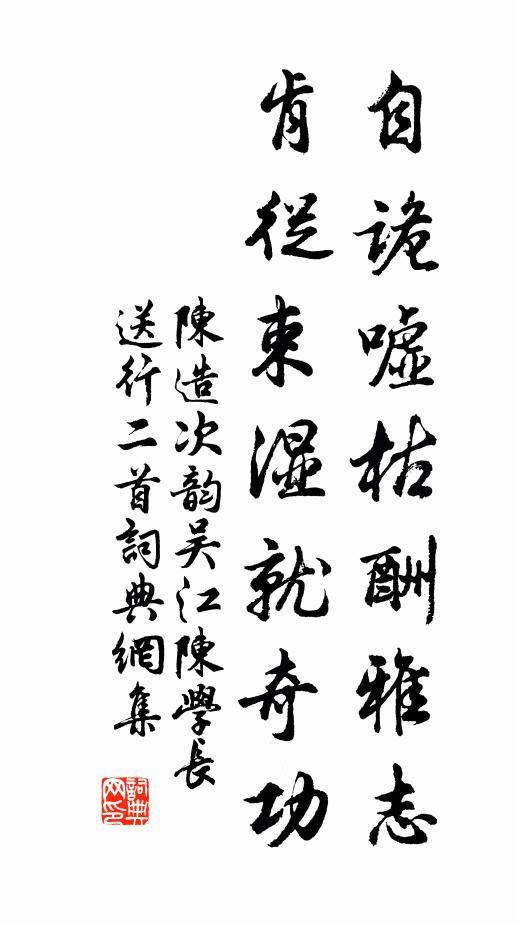 自詭噓枯酬雅志
肯從束湿就奇功
陳造次韵吴江陳學長
送行二首詞典網集
詞典
网印